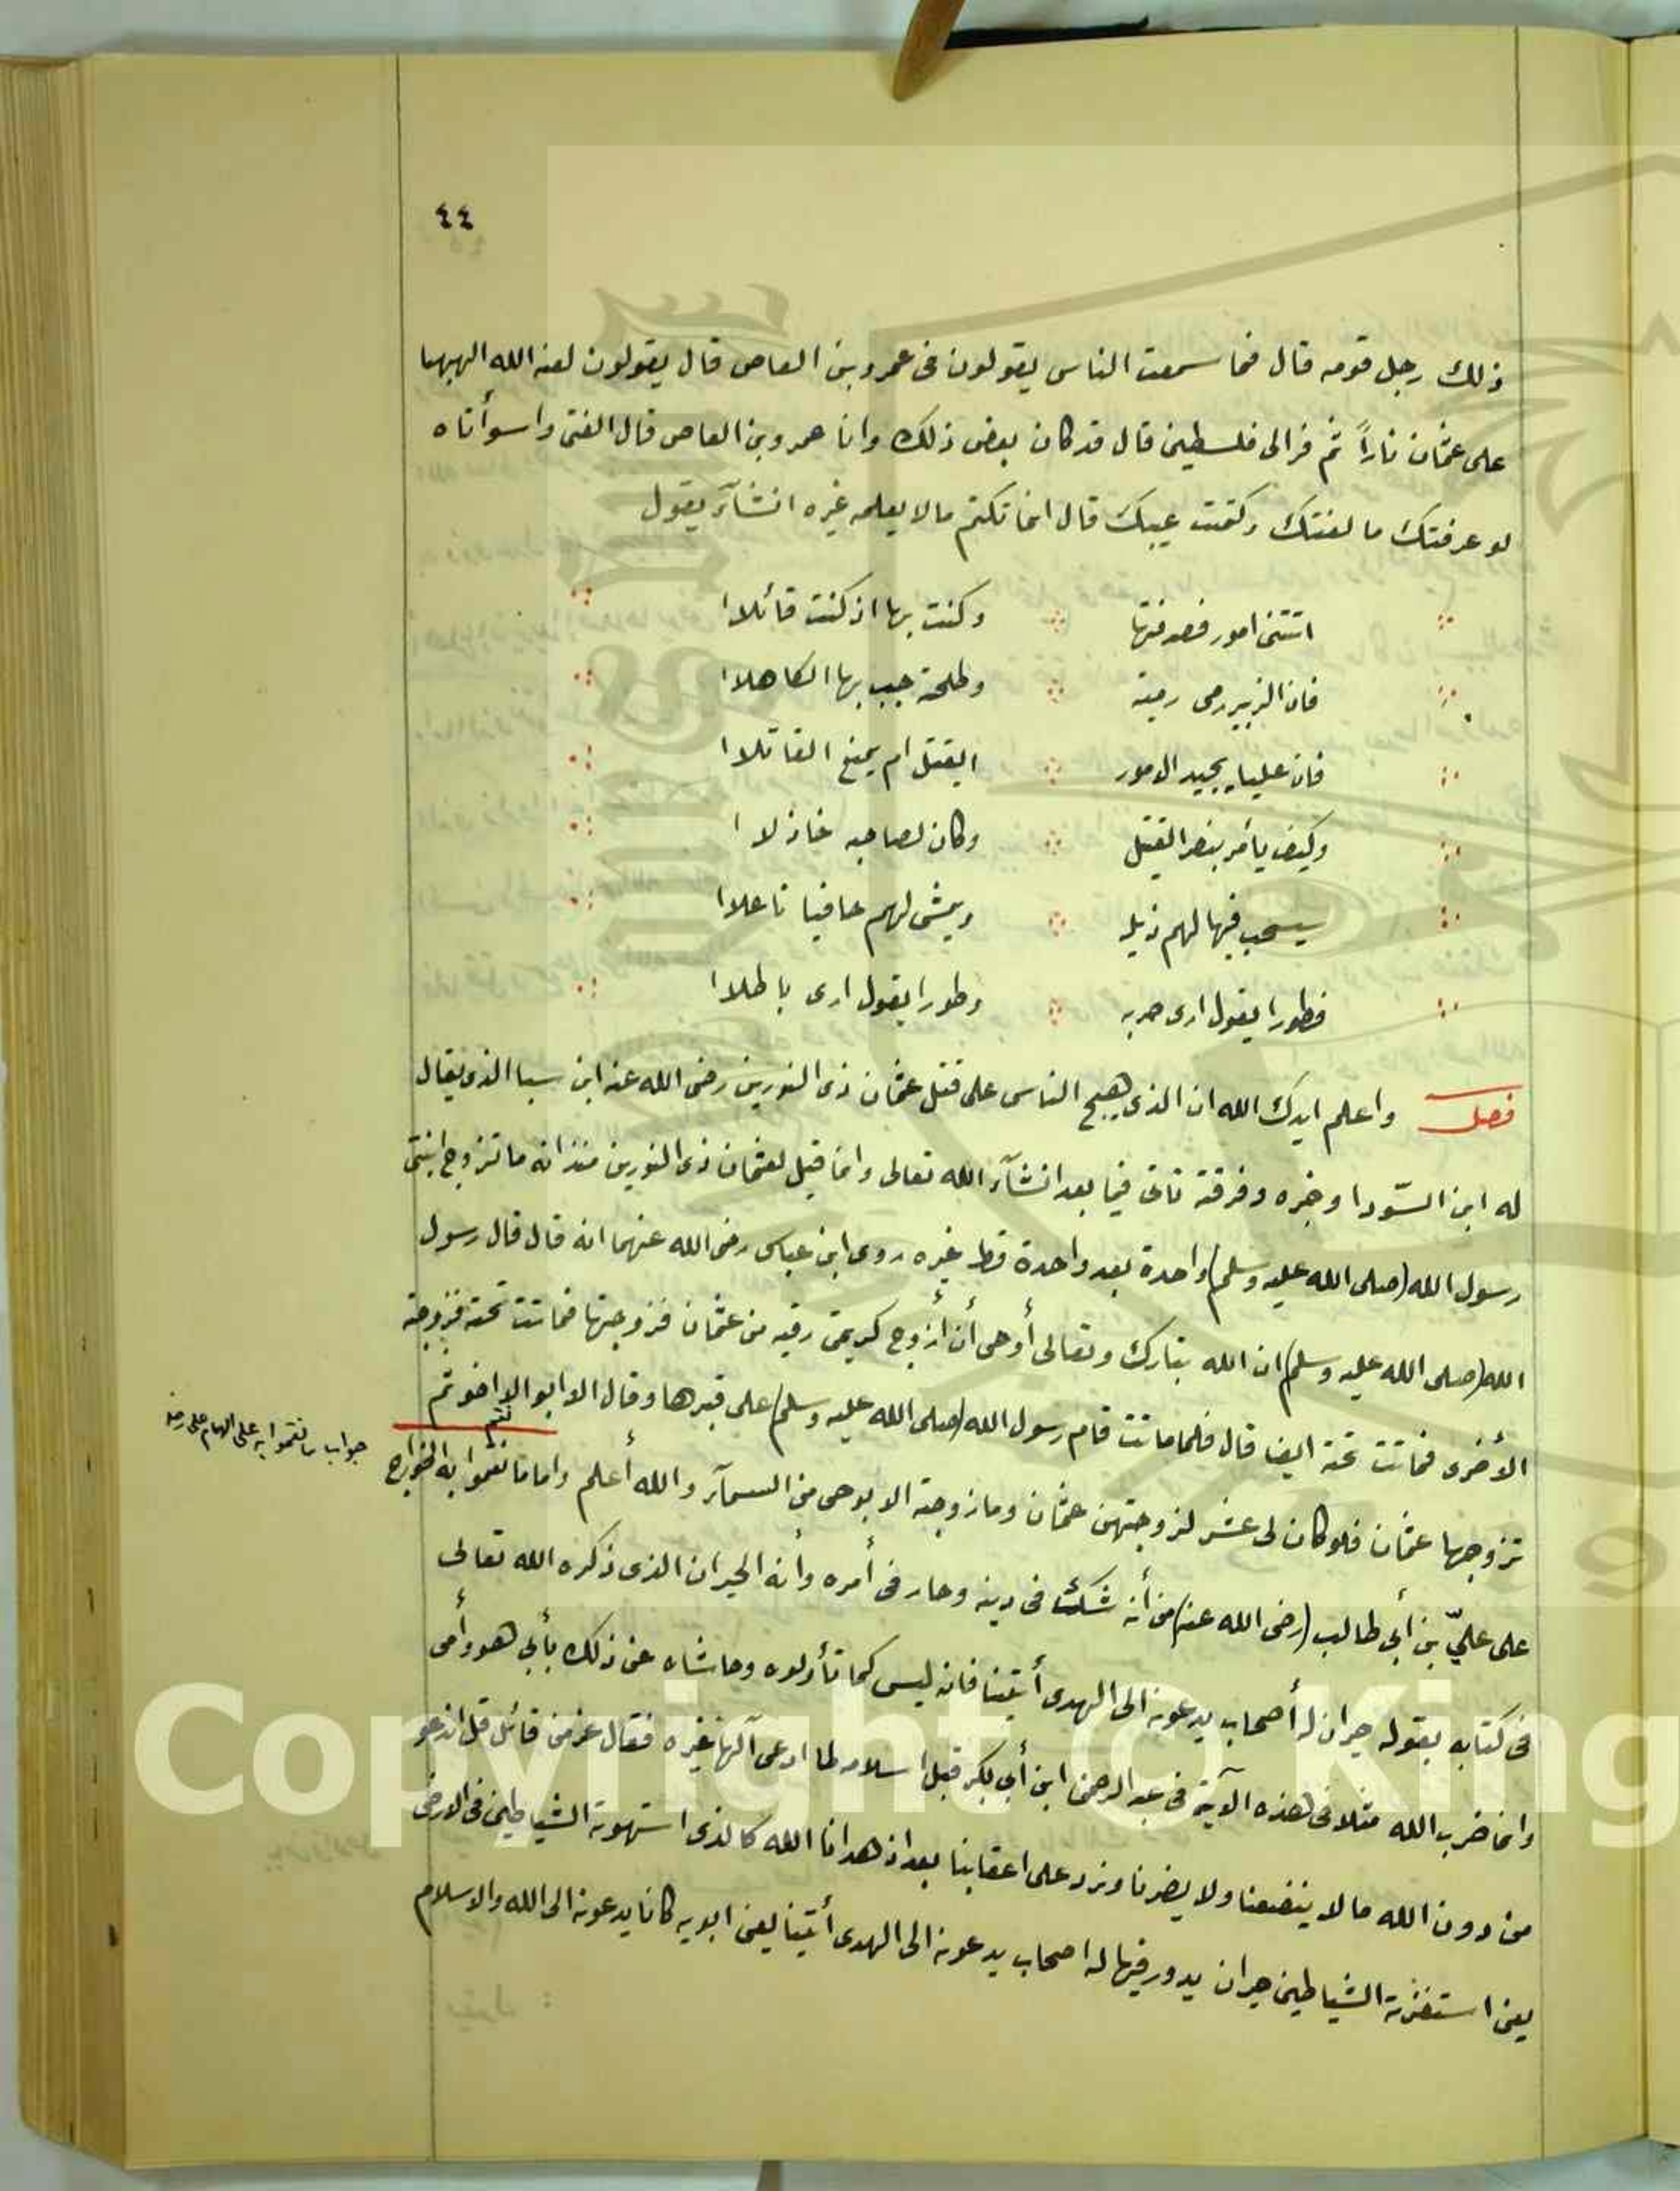 ٤٤
ذلك رجل قومه قال فما سمعت الناس يقولون فى عمرو بن العاص قال يقولون لعنه الله الهبها
على عثمان ناراً ثم فر الى فلسطين قال قد كان بعض ذلك وانا عمرو بن العاص قال الفتى واسوأتاه
لو عرفتك ما لعنتك وكتمت عيبك قال انما تكتم مالا يعلمه غيره انشآء يقول
اتتنى امور فصدفتها وكنت بها اذ كنت قائلا
فان الزبير رمى رمية وطلحة جبب بها الكاهلا
فان عليا يجيد الامور ايقتل ام يمنع القاتلا
وكيف يأمر بنصر القتيل وكان لصاحبه خاذلا
سيسحب فيها لهم ذيله ويمشى لهم حافيا ناعلا
فطورا يقول ارى حربه وطورا يقول ارى باطلا
فصل واعلم ايدك الله ان الذى هيج الناس على قتل عثمان ذى النورين رضى الله عنه ابن سبا الذى يقال
له ابن السّودا وخبره وفرقته تاتى فيما بعد انشآء الله تعالى وانما قيل لعثمان ذى النورين منذ انه ما تزوج ابنتى
رسول الله (صلى الله عليه وسلم) واحدة بعد واحدة قط غيره روى ابن عباس رضى الله عنهما انه قال قال رسول
الله (صلى الله عليه وسلم) ان الله تبارك وتعالى أوحى أن أزوج كريمتى رقيه من عثمان فزوجتها فماتت تحته فزوجته
الأخرى فماتت تحته ايضا قال فلما ماتت قام رسول الله (صلى الله عليه وسلم) على قبرها وقال الا ابو الا اخو ثم
تزوجها عثمان فلو كان لى عشر لزوجتهن عثمان وما زوجته الا بوحى من السمآء والله أعلم واما ما نقموا به الخوارج
على عليّ بن أبي طالب (رضى الله عنه) من أنه شك فى دينه وحار فى أمره وأنه الحيران الذى ذكره الله تعالى
فى كتابه بقوله حيران له أصحاب يدعونه الى الهدى أئتنا فانه ليس كما تأولوه وحاشاه عن ذلك بأبي هو وأمى
وانما ضرب الله مثلا فى هذه الآية فى عبد الرحمن ابن أبي بكر قبل اسلامه لما ادعى آلها غيره فقال عز من قائل قل اندعو
من دون الله ما لا ينفعنا ولا يضرنا ونرد على اعقابنا بعد اذ هدانا الله كالذى استهوته الشياطين فى الارض
يعنى استفزته الشياطين حيران يدور فيها له اصحاب يدعونه الى الهدى أئتنا يعنى ابويه كانا يدعونه الى الله والاسلام
جواب ما نقموا به على الامام على رضه
Copyright © King